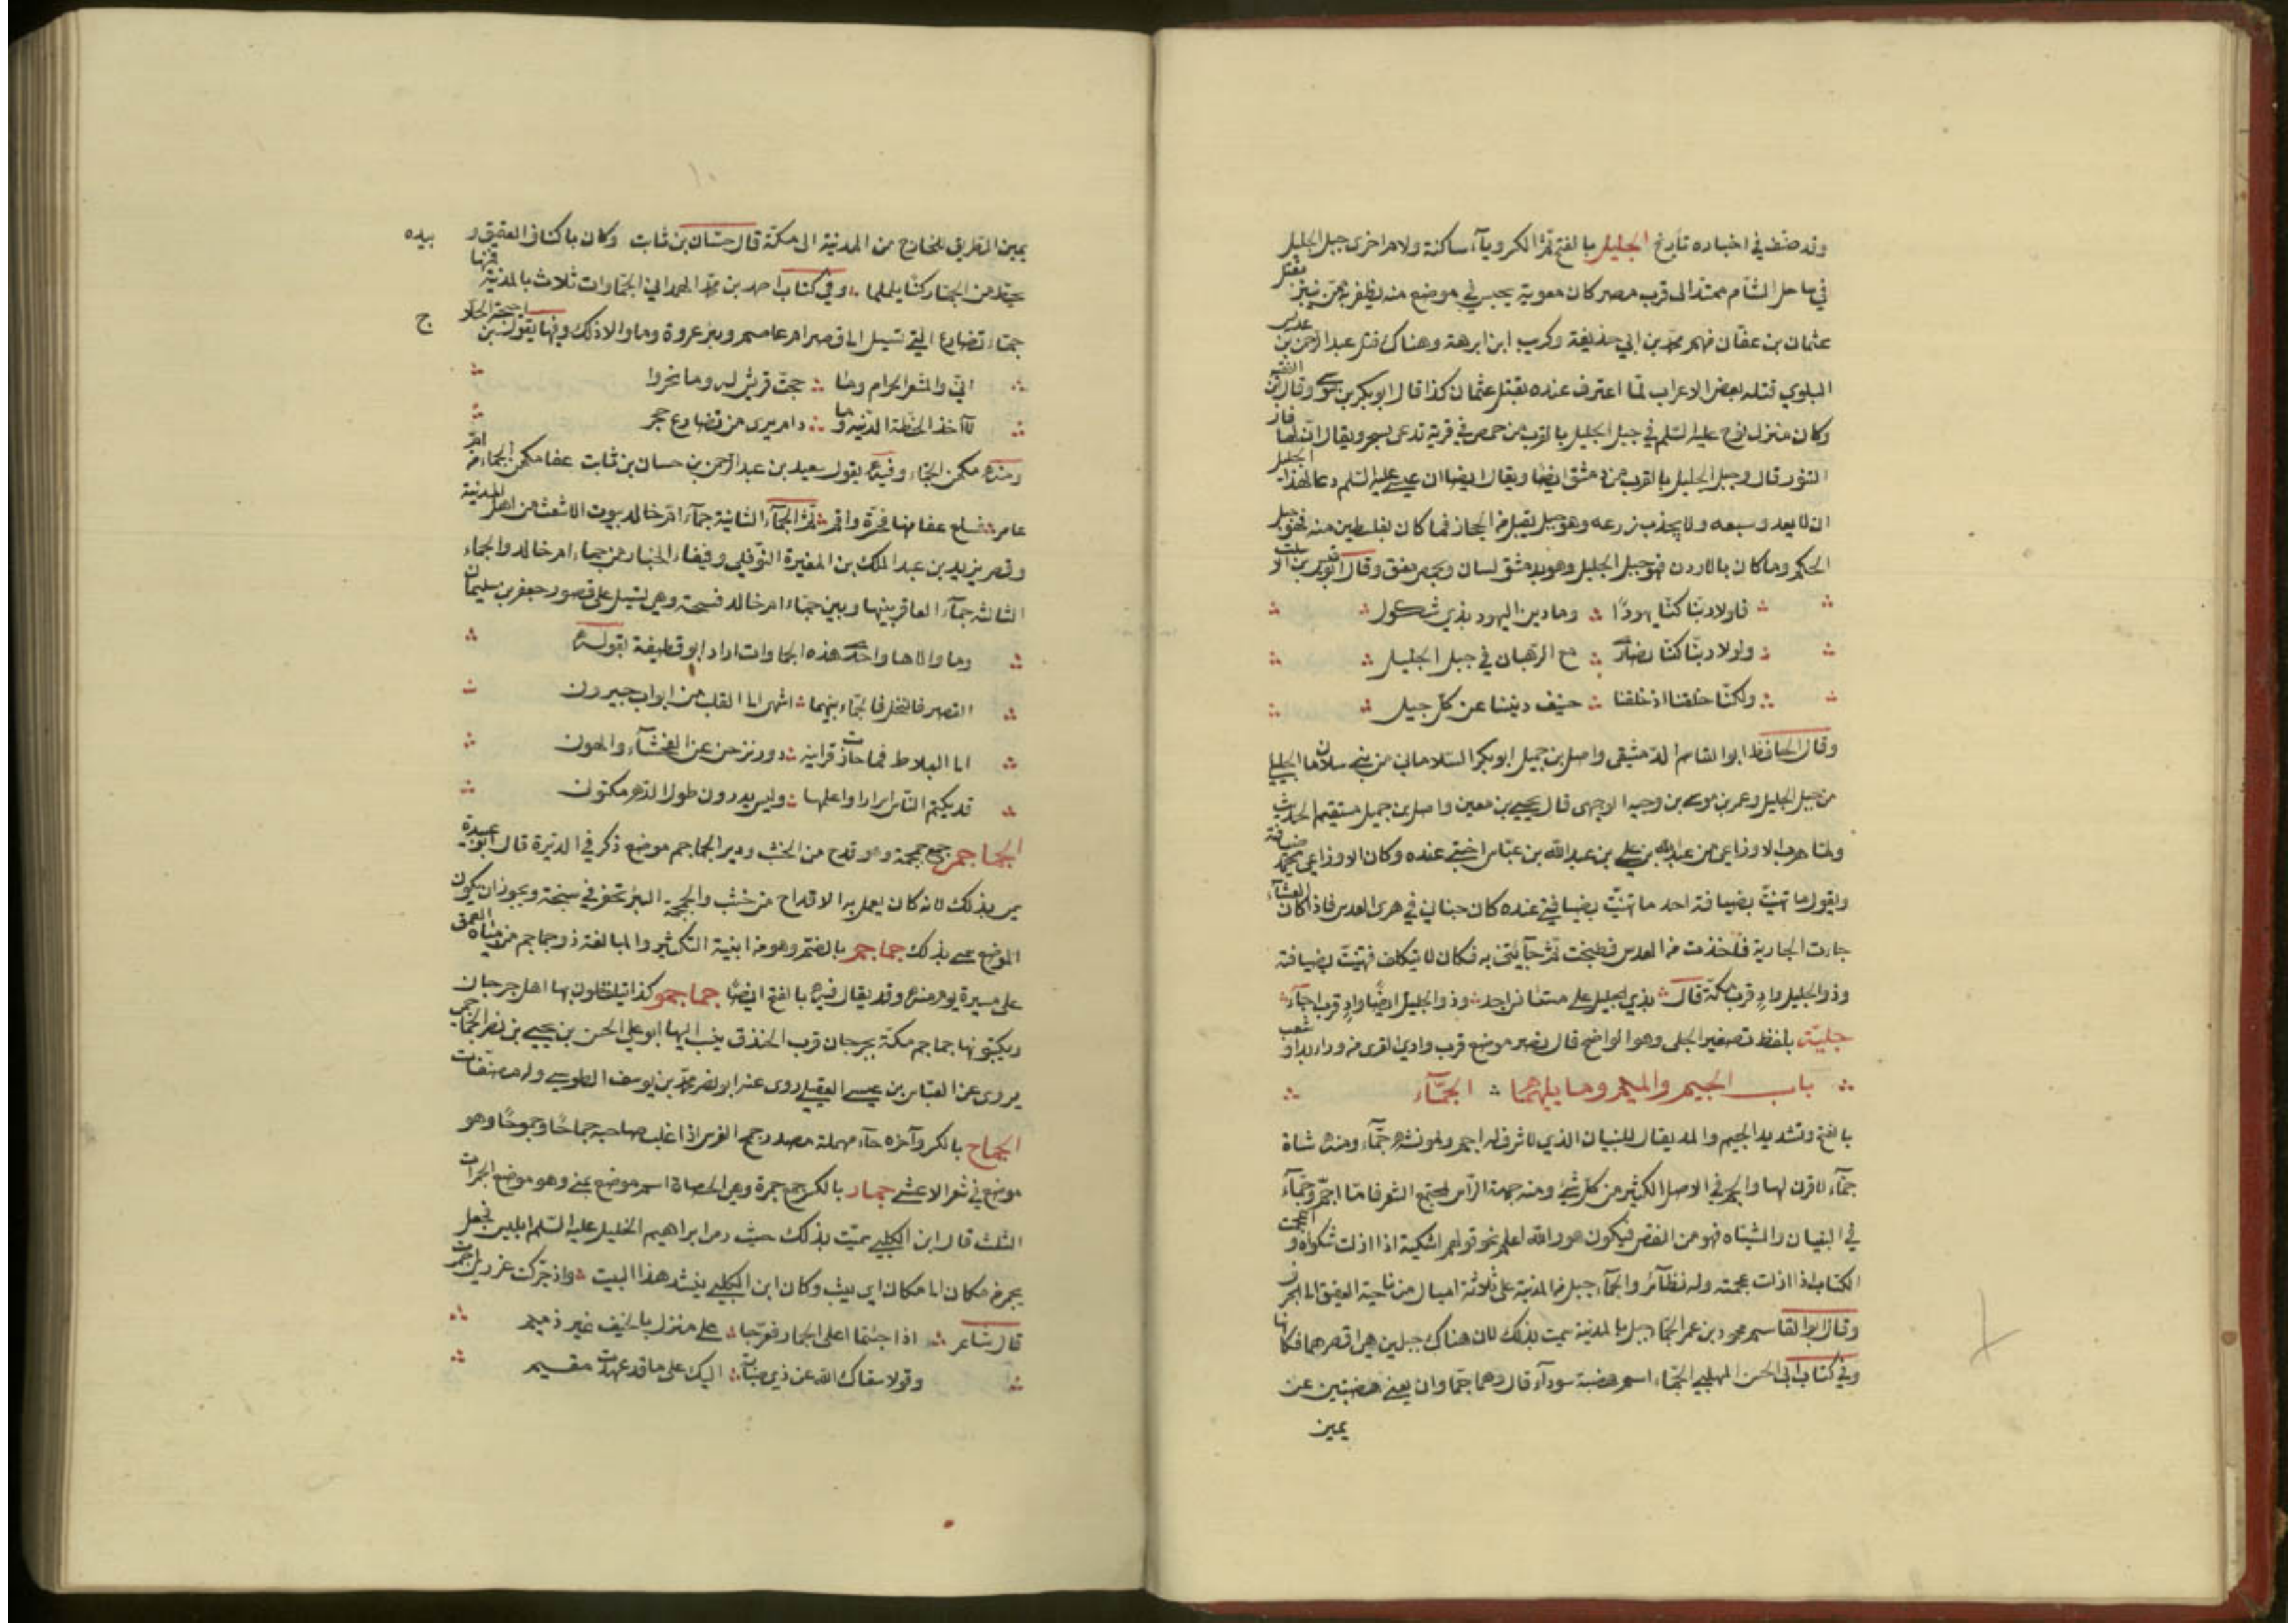 وقد صنف في اخباره تاريخ الجليل بالفتح ثم الكسر وياء ساكنة ولام اخرى جبل الجليل
في ساحل الشام ممتد الى قرب مصر كان معوية يحبس في موضع منه يظفر به ممن ينبز بقتل
عثمان بن عفان منهم محمد بن ابي حذيفة وكريب ابن ابرهة وهناك قتل عبد الرحمن بن عديس
البلوي قتله بعض الاعراب لما اعترف عنده بقتل عثمان كذا قال ابو بكر بن موسى وقال ابن الفقيه
وكان منزل نوح عليه السلم في جبل الجليل بالقرب من حمص في قرية تدعى سحر ويقال ان بها فار
التنور قال وجبل الجليل بالقرب من دمشق ايضا ويقال ايضا ان عيسى عليه السلم دعا لهذا الجبل
ان لا يعدو سبعه ولا يجذب زرعه وهو جبل يقبل من الحجاز فما كان بفلسطين منه فهو جبل
الحكم وما كان بالاردن فهو جبل الجليل وهو بدمشق لسان وبحمص
فلولا ربنا كنا يهودًا وما دين اليهود بذي شكول
ولولا ربنا كنا نصارى مع الرهبان في جبل الجليل
ولكنا خلقنا اذ خلقنا حنيف ديننا عن كل جيل
وقال الحافظ ابو القاسم الدمشقي واصل بن جميل ابو بكر السلاماني من بني سلامان الجليلي
من جبل الجليل وعمر بن موسى بن وجيه الوجهي قال يحيى بن معين واصل بن جميل مستقيم الحديث
ولما هرب الاوزاعي من عبد الله بن علي بن عبد الله بن عباس اختبى عنده وكان الاوزاعي يحمد ضيافته
ويقول ما تهنيت بضيافة احد ما تهنيت بضيافتي عنده كان خبأني في هري العدس فاذا كان العشاء
جاءت الجارية فاخذت من العدس فطبخت ثم جآئتني به فكان لا يتكلف فتهنيت بضيافته
وذو الجليل وادٍ قرب مكة قال بذي الجليل على مستانس وحد وذو الجليل ايضًا وادٍ قرب اجاء
جلية بلفظ تصغير الجلي وهو الواضح قال نصر موضع قرب وادي القرى من وراء بدا وشعب
باب الجيم والميم وما يليهما الجماء
بالفتح وتشديد الميم والمد يقال للبنيان الذي لا شرف له اجم ولمونثه جماء ومنه شاة
جماء لا قرن لها والجم في الاصل الكثير من كل شيء ومنه جمة الراس لمجتمع الشعر فاما اجم وجماء
في البنيان والشياه فهو من النقص فيكون هو والله اعلم نحو قولهم اشكيته اذا ازلت شكواه واعجمت
الكتاب اذا ازلت عجمته وله نظآئر والجماء جبل من المدينة على ثلاثة اميال من ناحية العقيق الى الجرف
وقال ابو القاسم محمود بن عمر الجماء جبل بالمدينة سميت بذلك لان هناك جبلين هي اقصرهما فكانها
وفي كتاب ابي الحسن المهلبي الجماء اسم هضبة سودآء قال وهما جماوان يعني هضبتين عن
يمين
يمين الطريق للخارج من المدينة الى مكة قال حسان بن ثابت وكان باكناف العقيق و بيده
يحط من الجماء ركنا يلملما وفي كتاب احمد بن محمد الهمداني الجماوات ثلاث بالمدينة فمنها
جماء تضارع التي تسيل الى قصر ام عاصم وبئر عروة وما والا ذلك وفيها يقول احيحة بن الجلا ح
اني والمشعر الحرام وما حجت قريش له وما نحروا
لا آخذ الخطة الدنية ما دام يرى من تضارع حجر
ومنه مكيمن الجماء وفيه يقول سعيد بن عبد الرحمن بن حسان بن ثابت عفا مكمن الجماء من ام
عامر فسلع عفا منها فحرة واقم ثم الجماء الثانية جماء ام خالد بيوت الاشعث من اهل المدينة
وقصر يزيد بن عبد الملك بن المغيرة النوفلي وفيفاء الخبار من جماء ام خالد والجماء
الثالثه جماء العاقر بينها وبين جماء ام خالد فسحة وهي تسيل على قصور جعفر بن سليمان
وما والاها واحد هذه الجماوات اراد ابو قطيفة بقوله
القصر فالنخل فالجماء بينهما اشهى الى القلب من ابواب جيرون
الى البلاط فما حازت قراينه دور نزحن عن الفحشاء والهون
قد يكتم الناس اسرارا واعلمها وليس يدرون طول الدهر مكنون
الجماجم جمع جمجمة وهو قدح من الخشب ودير الجماجم موضع ذكر في الديرة قال ابو عبيدة
سمي بذلك لانه كان يعمل به الاقداح من خشب والجمجمة البئر تحفر في سبخة ويجوز ان يكون
الموضع سمي بذلك جماجم بالضم وهو من ابنية التكثير والمبالغة ذو جماجم من مياه العمق
على مسيرة يوم منه وقد يقال فيه بالفتح ايضًا جماجمو كذا يتلفظون بها اهل جرجان
ويكتبونها جماجم سكة بجرجان قرب الخندق ينسب اليها ابو علي الحسن بن يحيى بن نصر الجماجمي
يروي عن العباس بن عيسى العقيلي روى عنه ابو نصر محمد بن يوسف الطوسي وله مصنفات
الجماح بالكسر وآخره حاء مهملة مصدر جمح الفرس اذا غلب صاحبه جماحًا وجموحًا وهو
موضع في شعر الاعشى جمار بالكسر جمع جمرة وهي الحصاة اسم موضع بمنى وهو موضع الجمرات
الثلث قال ابن الكلبي سميت بذلك حيث رمى ابراهيم الخليل عليه السلم ابليس فجعل
يجمر من مكان الى مكان اي يثب وكان ابن الكلبي ينشد هذا البيت واذ حركت غرزي اجمرت
قال شاعر اذا جئتما اعلى الجمار فعرجا على منزل بالخيف غير ذميم
وقولا سقاك الله عن ذي صبابة اليك على ما قد عهدت مقيم